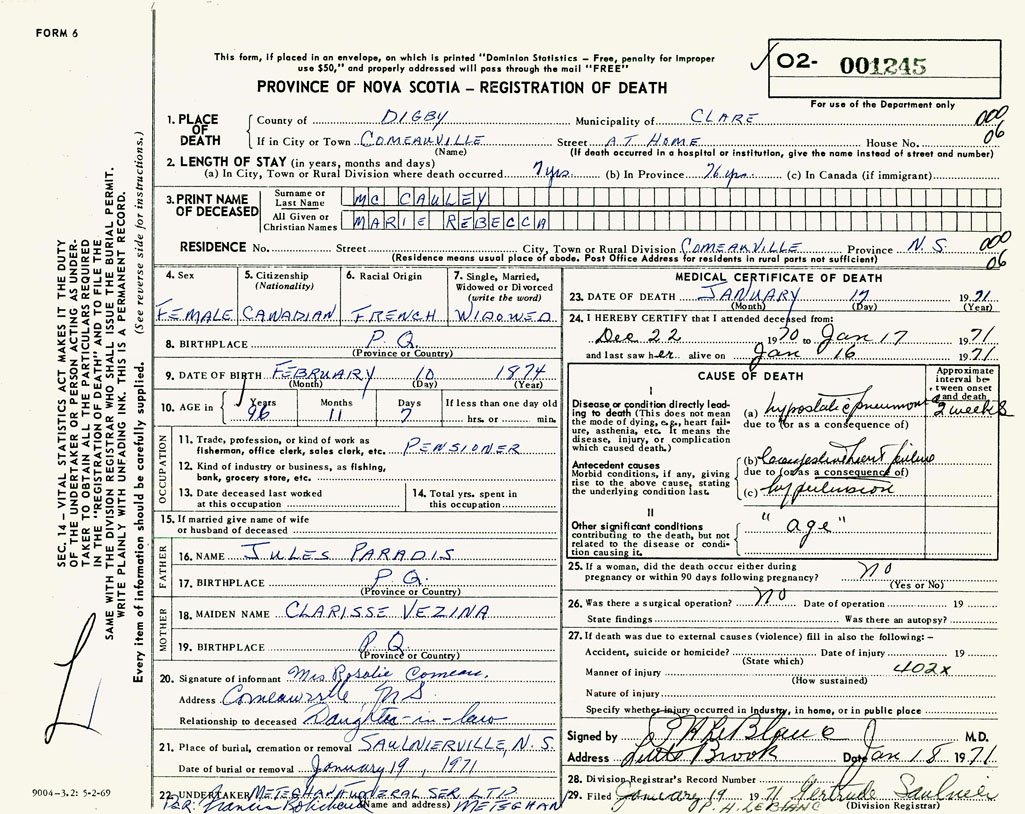 FORM 6
This form, if placed in an envelope, on which is printed "Dominion Statistics - Free, penalty for improper
use $50," and properly addressed will pass through the mail "FREE"
O2- 001245
For use of the Department only
PROVINCE OF NOVA SCOTIA - REGISTRATION OF DEATH
SEC. 14 - VITAL STATISTICS ACT MAKES IT THE DUTY
OF THE UNDERTAKER OR PERSON ACTING AS UNDER-
TAKER TO OBTAIN ALL THE PARTICULARS REQUIRED
IN THE "REGISTRATION OF DEATH" AND TO FILE THE
SAME WITH THE DIVISION REGISTRAR WHO SHALL ISSUE THE BURIAL PERMIT.
WRITE PLAINLY WITH UNFADING INK. THIS IS A PERMANENT RECORD.
Every item of information should be carefully supplied. (See reverse side for instructions.)
1. PLACE OF DEATH
County of DIGBY Municipality of CLARE 000
If in City or Town COMEAUVILLE Street AT HOME House No. 06
(Name) (If death occurred in a hospital or institution, give the name instead of street and number)
2. LENGTH OF STAY (in years, months and days)
(a) In City, Town or Rural Division where death occurred 7 yrs. (b) In Province 76 yrs. (c) In Canada (if immigrant)
3. PRINT NAME OF DECEASED
Surname or Last Name MC CAULEY
All Given or Christian Names MARIE REBECCA
RESIDENCE No. Street City, Town or Rural Division COMEAUVILLE Province N.S. 000
(Residence means usual place of abode. Post Office Address for residents in rural parts not sufficient) 06
4. Sex FEMALE
5. Citizenship (Nationality) CANADIAN
6. Racial Origin FRENCH
7. Single, Married, Widowed or Divorced (write the word) WIDOWED
8. BIRTHPLACE P.Q.
(Province or Country)
9. DATE OF BIRTH FEBRUARY 10 1874
(Month) (Day) (Year)
10. AGE in Years 96 Months 11 Days 7 If less than one day old hrs. or min.
OCCUPATION
11. Trade, profession, or kind of work as
fisherman, office clerk, sales clerk, etc. PENSIONER
12. Kind of industry or business, as fishing,
bank, grocery store, etc.
13. Date deceased last worked
at this occupation
14. Total yrs. spent in
this occupation
15. If married give name of wife
or husband of deceased
FATHER
16. NAME JULES PARADIS
17. BIRTHPLACE P.Q.
(Province or Country)
MOTHER
18. MAIDEN NAME CLARISSE VEZINA
19. BIRTHPLACE P.Q.
(Province or Country)
20. Signature of informant Mrs. Rosalie Comeau.
Address Comeauville, N.S.
Relationship to deceased Daughter-in-law
21. Place of burial, cremation or removal SAULNIERVILLE, N.S.
Date of burial or removal January 19, 1971
22. UNDERTAKER METEGHAN FUNERAL SER. LTD
PER: Francis Robichaud (Name and address) METEGHAN
9004-3.2: 5-2-69
MEDICAL CERTIFICATE OF DEATH
23. DATE OF DEATH JANUARY 17 1971
(Month) (Day) (Year)
24. I HEREBY CERTIFY that I attended deceased from:
Dec 22 1970 to Jan 17 1971
and last saw her alive on Jan 16 1971
CAUSE OF DEATH
Approximate interval between onset and death
I
Disease or condition directly leading to death (This does not mean
the mode of dying, e.g., heart failure, asthenia, etc. It means the
disease, injury, or complication
which caused death.)
(a) hypostatic pneumonia 2 weeks
due to (or as a consequence of)
Antecedent causes
Morbid conditions, if any, giving
rise to the above cause, stating
the underlying condition last.
(b) Congestive heart failure
due to (or as a consequence of)
(c) hypertension
II
Other significant conditions
contributing to the death, but not
related to the disease or condition causing it.
"age"
25. If a woman, did the death occur either during
pregnancy or within 90 days following pregnancy? no
(Yes or No)
26. Was there a surgical operation? no Date of operation 19
State findings Was there an autopsy?
27. If death was due to external causes (violence) fill in also the following: -
Accident, suicide or homicide? Date of injury 19
(State which)
Manner of injury 402x
(How sustained)
Nature of injury
Specify whether injury occurred in Industry, in home, or in public place
Signed by LeBlanc M.D.
Address Little Brook Date Jan 18 1971
28. Division Registrar's Record Number
29. Filed January 19 1971 Gertrude Saulnier
P. H. LEBLANC (Division Registrar)